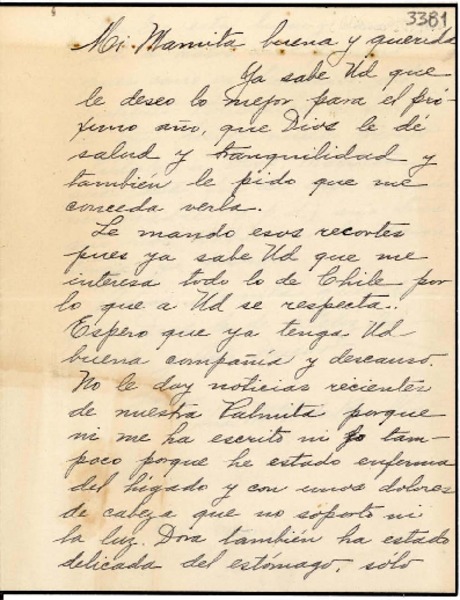 3381
Mi Mamita buena y querida
Ya sabe Ud que
le deseo lo mejor para el pró-
ximo año, que Dios le dé
salud y tranquilidad y
también le pido que me
conceda verla.
Le mando esos recortes
pues ya sabe Ud que me
interesa todo lo de Chile por
lo que a Ud se respecta..
Espero que ya tenga Ud
buena compañía y descanso.
No le doy noticias recientes
de nuestra Palmita porque
ni me ha escrito ni yo tam-
poco porque he estado enferma
del hígado y con unos dolores
de cabeza que no soporto ni
la luz. Dora también ha estado
delicada del estómago, sólo